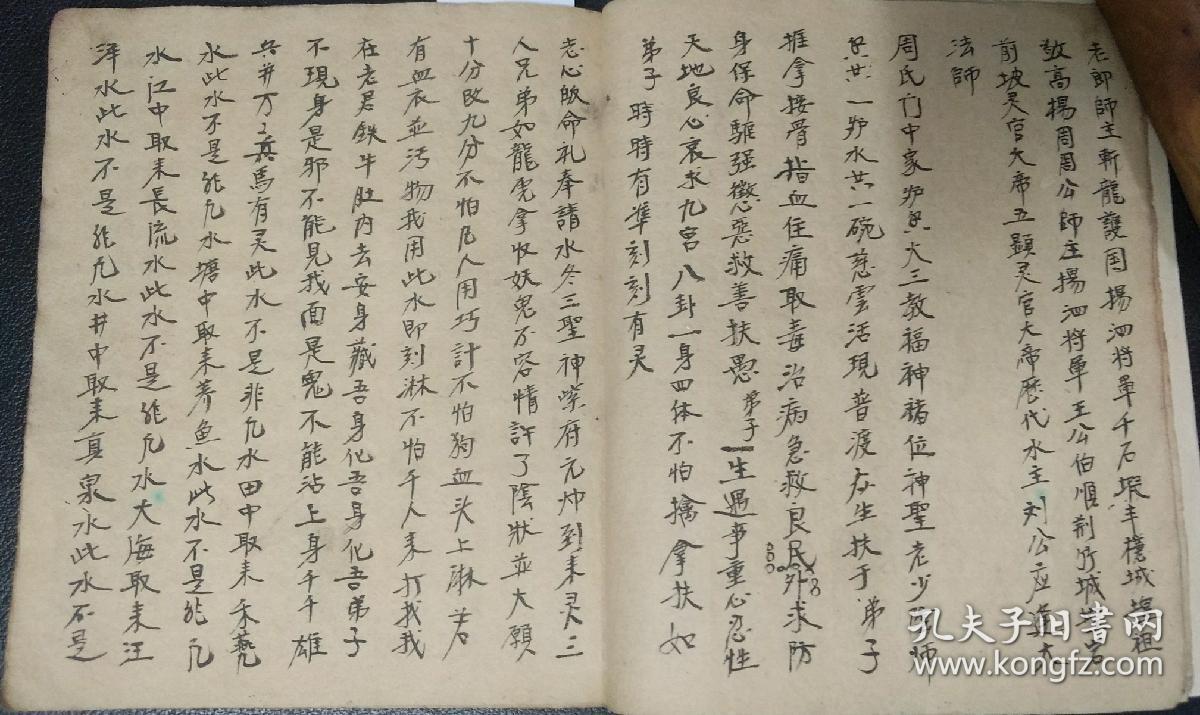 老郎師主斬龍護国揚泗将軍千石
敬高揚周周公師主揚泗将軍王公伯順荆竹城
前坡灵官大帝五顕灵官大帝歷代水主刘公应
法師
周氏门中家炉大三教福神褚位神聖老少師
共一炉水共一碗慈雲活現普渡众生扶于弟子
推拿接骨指血住痛取毒治病急救良民外求防
身保命驅强懲惡救善扶愚弟子一生遇事重心忍性
天地良心哀求九宫八卦一身四体不怕擒拿扶如
弟子時時有準刻刻有灵
志心皈命礼奉請水冬三聖神紫府元帅到来灵三
人兄弟如龍虎拿收妖鬼不容情許了陰状並大願
十分改九分不怕凡人用巧計不怕狗血头上淋若
有血衣並污物我用此水即刻淋不怕千人来打我我
在老君鉄牛肚内去安身藏吾身化吾身化吾弟子
不現身是邪不能見我面是鬼不能沾上身千千雄
兵并万万兵馬有灵此水不是非凡水田中取来禾
水此水不是能凡水塘中取来养魚水此水不是能凡
水江中取来長流水此水不是能凡水大海取来汪
洋水此水不是能凡水井中取来真泉水此水不是
孔夫子旧书网
www.kongfz.com